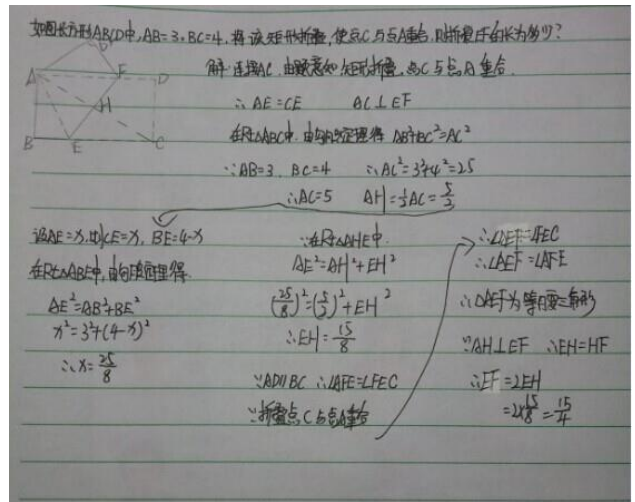 如图长方形ABCD中,AB=3,BC=4,将该矩形折叠,使点C与点A重合,则折叠EF的长为多少?
解:连接AC,由题意知矩形折叠,点C与点A重合.
∴AE=CE AC⊥EF
在Rt△ABC中,由勾股定理得 AB²+BC²=AC²
∵AB=3, BC=4 ∴AC²=3²+4²=25
∴AC=5 AH=½AC=5/2
设AE=x,则CE=x, BE=4-x
在Rt△ABE中,由勾股定理得
AE²=AB²+BE²
x²=3²+(4-x)²
∴x=25/8
∴在Rt△AHE中.
AE²=AH²+EH²
(25/8)²=(5/2)²+EH²
∴EH=15/8
∵AD∥BC ∴∠AFE=∠FEC
∵折叠点C与点A重合
∴∠AEF=∠FEC
∴∠AEF=∠AFE
∴△AEF为等腰三角形
∵AH⊥EF ∴EH=HF
∴EF=2EH
=2×15/8=15/4
D'
A
F
D
H
B
E
C